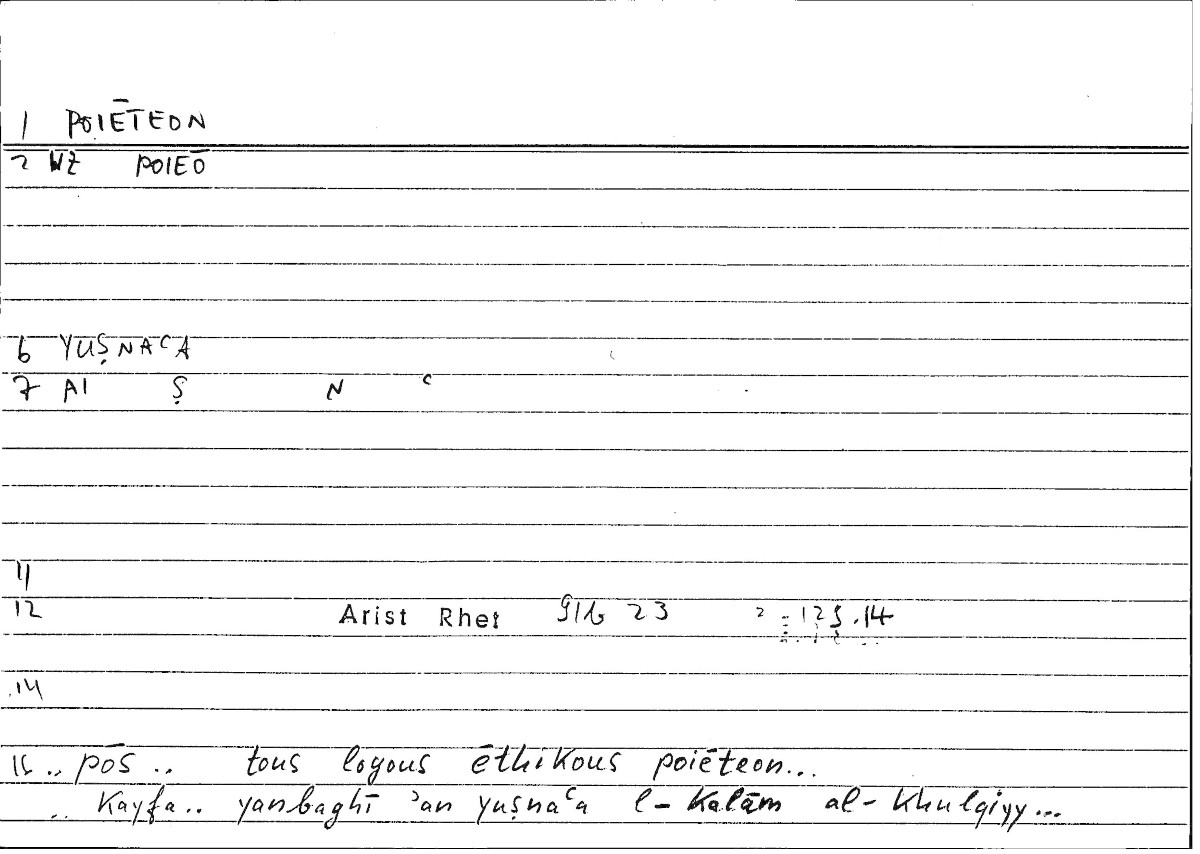 1 POIĒTEON
2 WZ POIEŌ
6 YUṢNAʿA
7 AI Ṣ N ʿ
11
12 Arist Rhet 91b 23 = 125.14
14
15 .. pōs .. tous logous ēthikous poiēteon...
.. Kayfa .. yanbaghī ʾan yuṣnaʿa l-Kalām al-Khulqiyy...